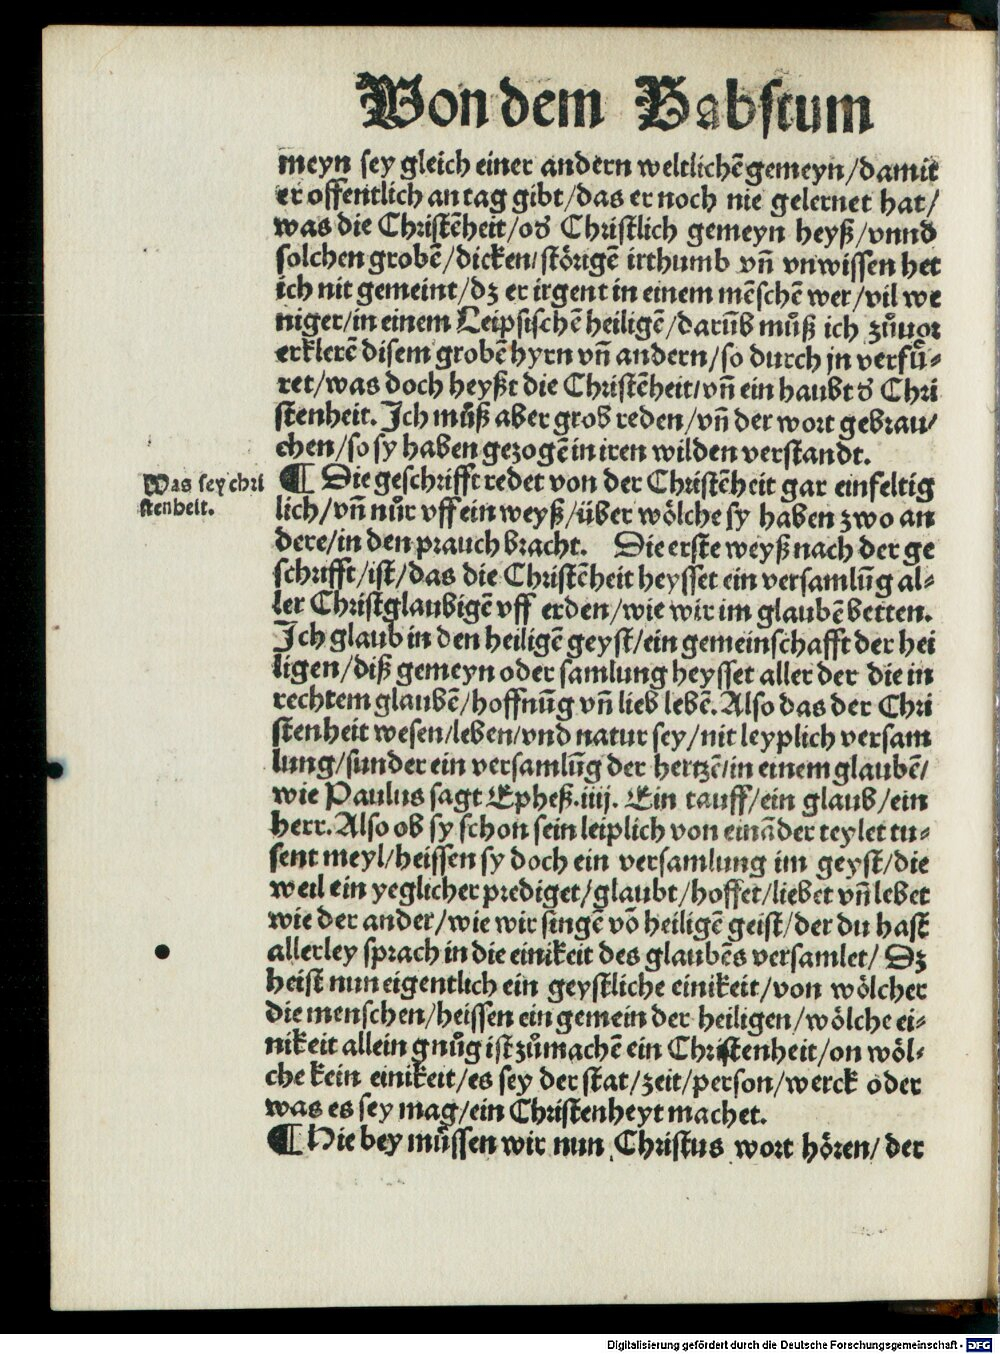 Von dem Babstum
meyn sey gleich einer andern weltlichē gemeyn/damit
er offentlich an tag gibt/das er noch nie gelernet hat/
was die Christēheit/od̕ Christlich gemeyn heyß/vnnd
solchen grobē/dicken/störigē irthumb vñ vnwissen het
ich nit gemeint/dz er irgent in einem mēschē wer/vil we
niger/in einem Leipsischē heiligē/darūb můß ich zůuor
erklerē disem grobē hyrn vñ andern/so durch jn verfü⸗
ret/was doch heyßt die Christēheit/vñ ein haubt d̕ Chri
stenheit. Ich můß aber grob reden/vñ der wort gebrau/
chen/so sy haben gezogē in iren wilden verstandt.
Was sey chri
stenheit.
¶ Die geschrifft redet von der Christēheit gar einfeltig
lich/vñ nůr vff ein weyß/über wölche sy haben zwo an
dere/in den prauch bracht. Die erste weyß nach der ge
schrifft/ist/das die Christēheit heysset ein versamlūg al⸗
ler Christglaubigē vff erden/wie wir im glaubē betten.
Ich glaub in den heiligē geyst/ein gemeinschafft der hei
ligen/diß gemeyn oder samlung heysset aller der die in
rechtem glaubē/hoffnūg vñ lieb lebē. Also das der Chri
stenheit wesen/leben/vnd natur sey/nit leyplich versam
lung/sunder ein versamlūg der hertzē/in einem glaubē/
wie Paulus sagt Epheß.iiij. Ein tauff/ein glaub/ein
herr. Also ob sy schon sein leiplich von eināder teylet tu⸗
sent meyl/heissen sy doch ein versamlung im geyst/die
weil ein yeglicher prediget/glaubt/hoffet/liebet vñ lebet
wie der ander/wie wir singē vō heiligē geist/der du hast
allerley sprach in die einikeit des glaubēs versamlet/ Dz
heist nun eigentlich ein geystliche einikeit/von wölcher
die menschen/heissen ein gemein der heiligen/wölche ei⸗
nikeit allein gnůg ist zůmachē ein Christenheit/on wöl⸗
che kein einikeit/es sey der stat/zeit/person/werck oder
was es sey mag/ein Christenheyt machet.
¶ Hie bey müssen wir nun Christus wort hören/der
Digitalisierung gefördert durch die Deutsche Forschungsgemeinschaft - DFG